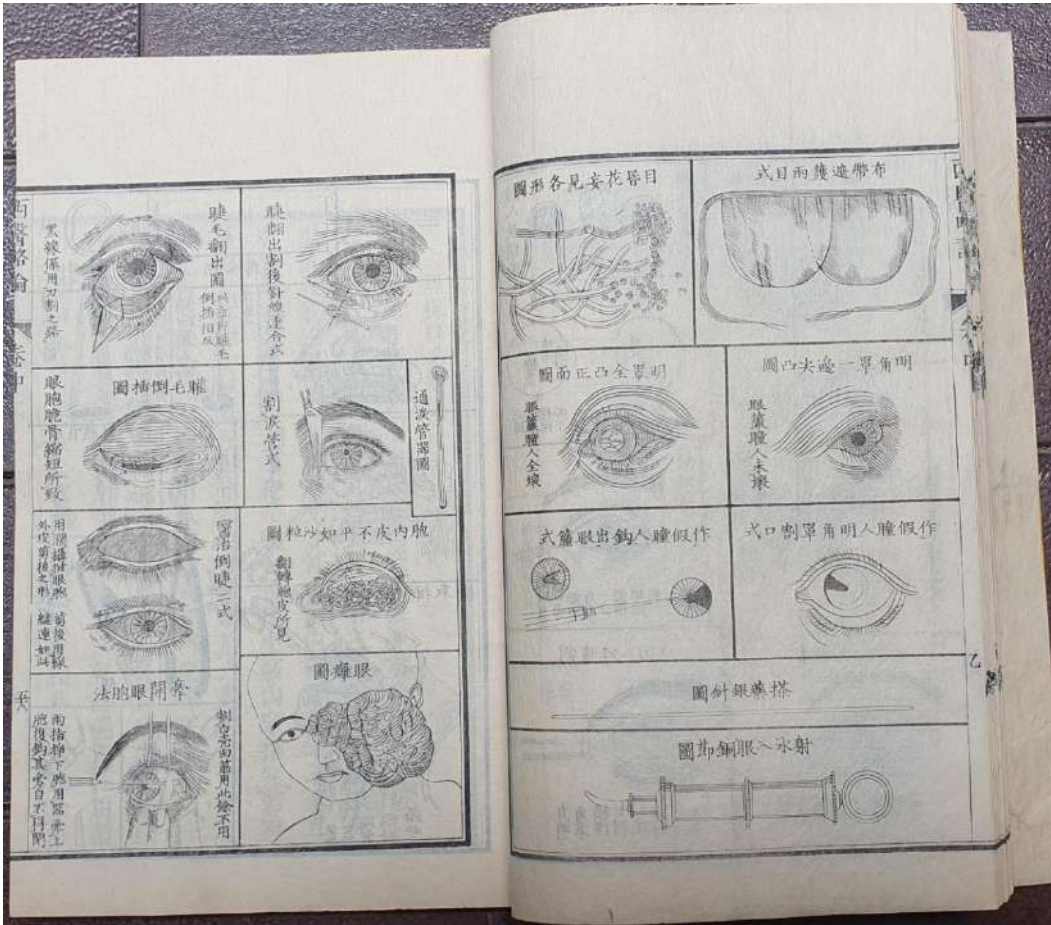 布幣遮護兩目式
目昏花妄見各形圖
明角罩一邊尖凸圖
眼簾瞳人未壞
明罩全凸正面圖
眼簾瞳人全壞
作假瞳人明角罩割口式
作假瞳人鈎出眼簾式
搽藥銀針圖
射水入眼銅唧圖
乙
睫翻出割後針縫連合式
睫毛翻出圖
倒插相反
黑線係用刀割之路
通淚管器圖
割淚管式
睫毛倒插圖
眼胞脆骨縮短所致
胞內皮不平如沙粒圖
翻轉胞皮所見
醫治倒睫一式
用鉗攝住眼胞
外皮剪後之形
剪後用線
縫連如此
眼癰圖
撐開眼胞法
割白壳肉筋用此餘不用
兩指捺下胞用器撐上
胞復鈎其壳白不得閉
西醫略論
卷中